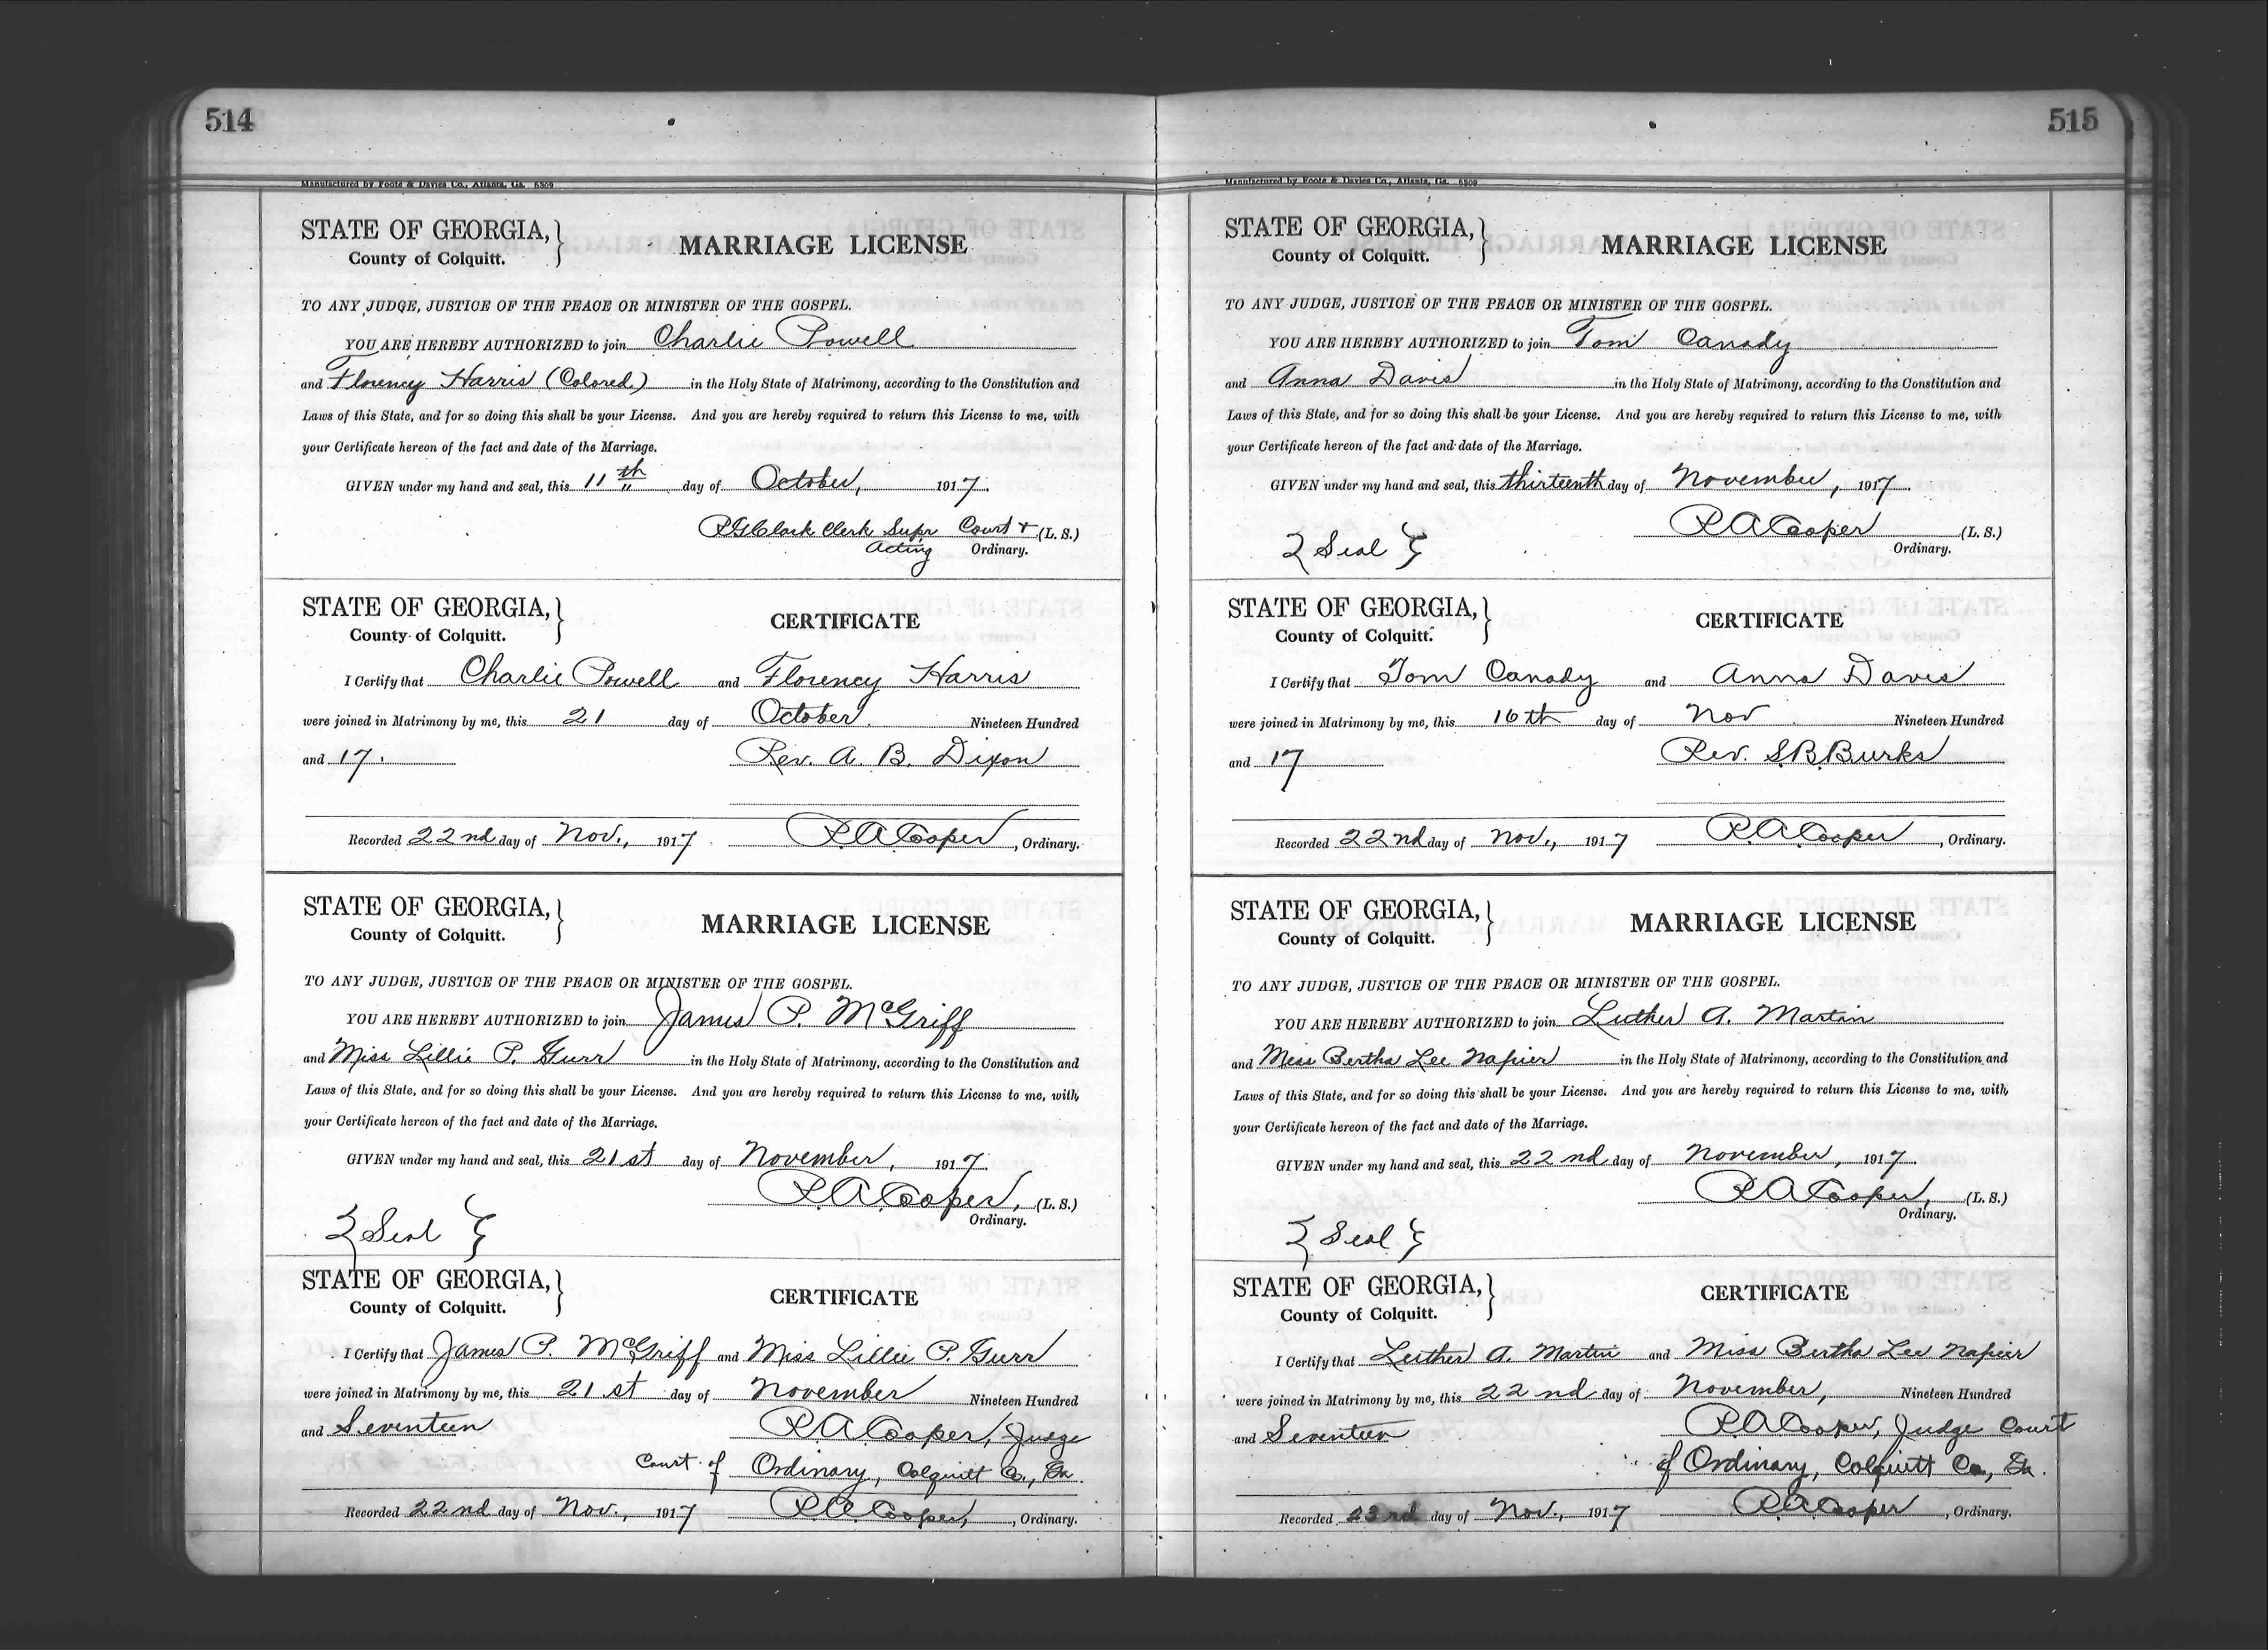 514
Manufactured by Foote & Davies Co., Atlanta, Ga. 6309
STATE OF GEORGIA,
County of Colquitt.
MARRIAGE LICENSE
TO ANY JUDGE, JUSTICE OF THE PEACE OR MINISTER OF THE GOSPEL.
YOU ARE HEREBY AUTHORIZED to join Charlie Powell
and Florency Harris (Colored) in the Holy State of Matrimony, according to the Constitution and
Laws of this State, and for so doing this shall be your License. And you are hereby required to return this License to me, with
your Certificate hereon of the fact and date of the Marriage.
GIVEN under my hand and seal, this 11th day of October, 1917.
Clark Clerk Supr Court & (L. S.)
Acting Ordinary.
STATE OF GEORGIA,
County of Colquitt.
CERTIFICATE
I Certify that Charlie Powell and Florency Harris
were joined in Matrimony by me, this 21 day of October Nineteen Hundred
and 17.
Rev. A. B. Dixon
Recorded 22nd day of Nov., 1917 R.A. Cooper, Ordinary.
STATE OF GEORGIA,
County of Colquitt.
MARRIAGE LICENSE
TO ANY JUDGE, JUSTICE OF THE PEACE OR MINISTER OF THE GOSPEL.
YOU ARE HEREBY AUTHORIZED to join James P. McGriff
and Miss Lillie P. Gurr in the Holy State of Matrimony, according to the Constitution and
Laws of this State, and for so doing this shall be your License. And you are hereby required to return this License to me, with
your Certificate hereon of the fact and date of the Marriage.
GIVEN under my hand and seal, this 21st day of November, 1917.
R.A. Cooper, (L. S.)
Ordinary.
Seal
STATE OF GEORGIA,
County of Colquitt.
CERTIFICATE
I Certify that James P. McGriff and Miss Lillie P. Gurr
were joined in Matrimony by me, this 21st day of November Nineteen Hundred
and Seventeen R.A. Cooper, Judge
Court of Ordinary, Colquitt Co., Ga.
Recorded 22nd day of Nov., 1917 R.A. Cooper, Ordinary.
515
Manufactured by Foote & Davies Co., Atlanta, Ga. 6309
STATE OF GEORGIA,
County of Colquitt.
MARRIAGE LICENSE
TO ANY JUDGE, JUSTICE OF THE PEACE OR MINISTER OF THE GOSPEL.
YOU ARE HEREBY AUTHORIZED to join Tom Canady
and Anna Davis in the Holy State of Matrimony, according to the Constitution and
Laws of this State, and for so doing this shall be your License. And you are hereby required to return this License to me, with
your Certificate hereon of the fact and date of the Marriage.
GIVEN under my hand and seal, this thirteenth day of November, 1917.
R.A. Cooper (L. S.)
Ordinary.
Seal
STATE OF GEORGIA,
County of Colquitt.
CERTIFICATE
I Certify that Tom Canady and Anna Davis
were joined in Matrimony by me, this 16th day of Nov Nineteen Hundred
and 17
Rev. S.B. Burks
Recorded 22nd day of Nov., 1917 R.A. Cooper, Ordinary.
STATE OF GEORGIA,
County of Colquitt.
MARRIAGE LICENSE
TO ANY JUDGE, JUSTICE OF THE PEACE OR MINISTER OF THE GOSPEL.
YOU ARE HEREBY AUTHORIZED to join Luther A. Martin
and Miss Bertha Lee Napier in the Holy State of Matrimony, according to the Constitution and
Laws of this State, and for so doing this shall be your License. And you are hereby required to return this License to me, with
your Certificate hereon of the fact and date of the Marriage.
GIVEN under my hand and seal, this 22nd day of November, 1917.
R.A. Cooper, (L. S.)
Ordinary.
Seal
STATE OF GEORGIA,
County of Colquitt.
CERTIFICATE
I Certify that Luther A. Martin and Miss Bertha Lee Napier
were joined in Matrimony by me, this 22nd day of November, Nineteen Hundred
and Seventeen R.A. Cooper, Judge Court
of Ordinary, Colquitt Co., Ga.
Recorded 23rd day of Nov., 1917 R.A. Cooper, Ordinary.